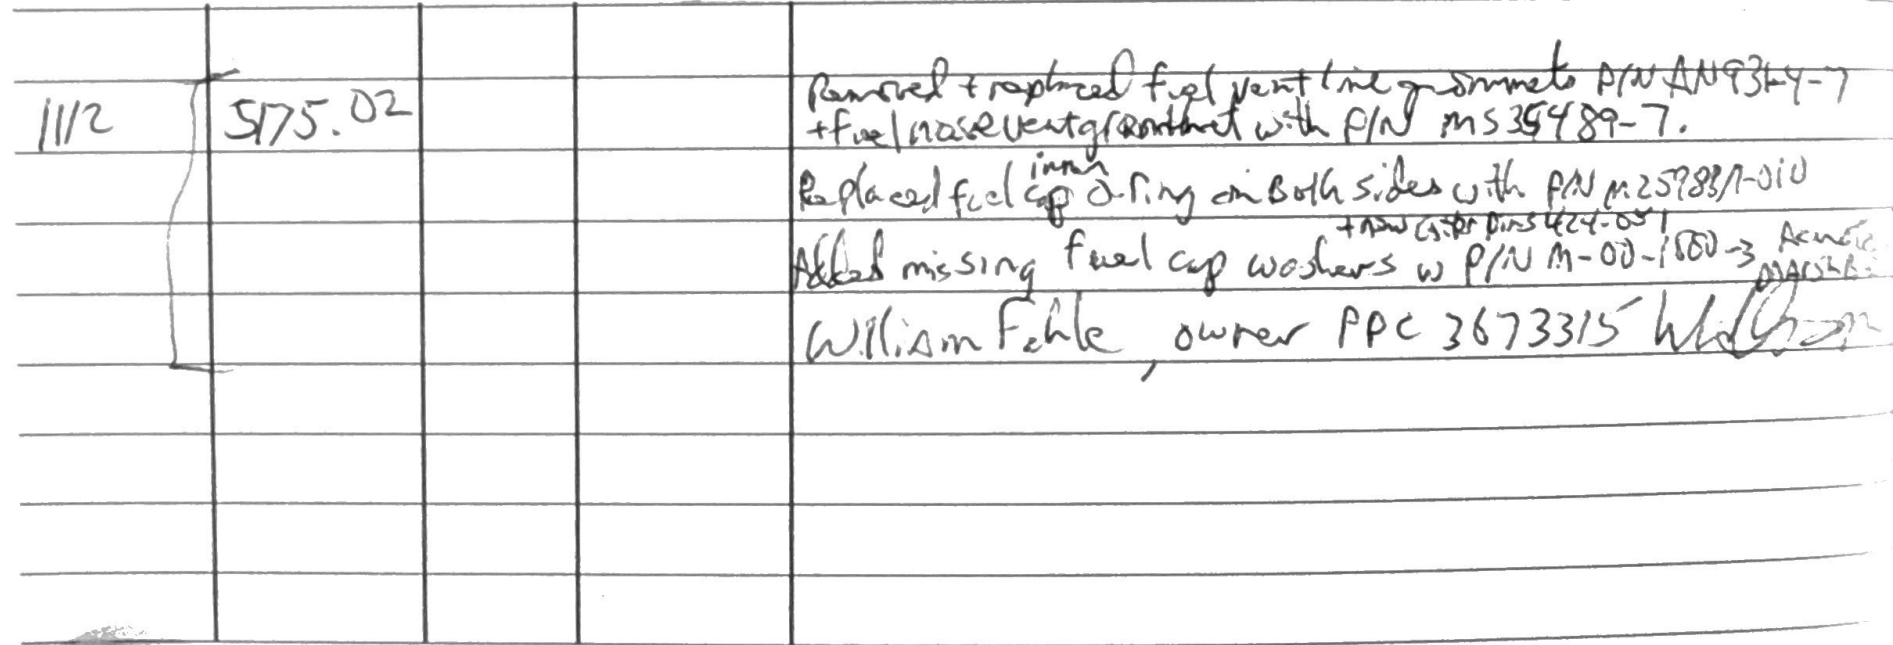 Removed + replaced fuel vent line grommets P/N AN931-4-7
1112 5175.02 + fuel nose vent grommet with P/N MS35489-7.
inner
Replaced fuel cap O-ring on Both sides with P/N M25983/1-010
+ new cotter pins 424-051
Added missing fuel cap washers w P/N M-00-1500-3
William Fehle, owner PPC 3673315